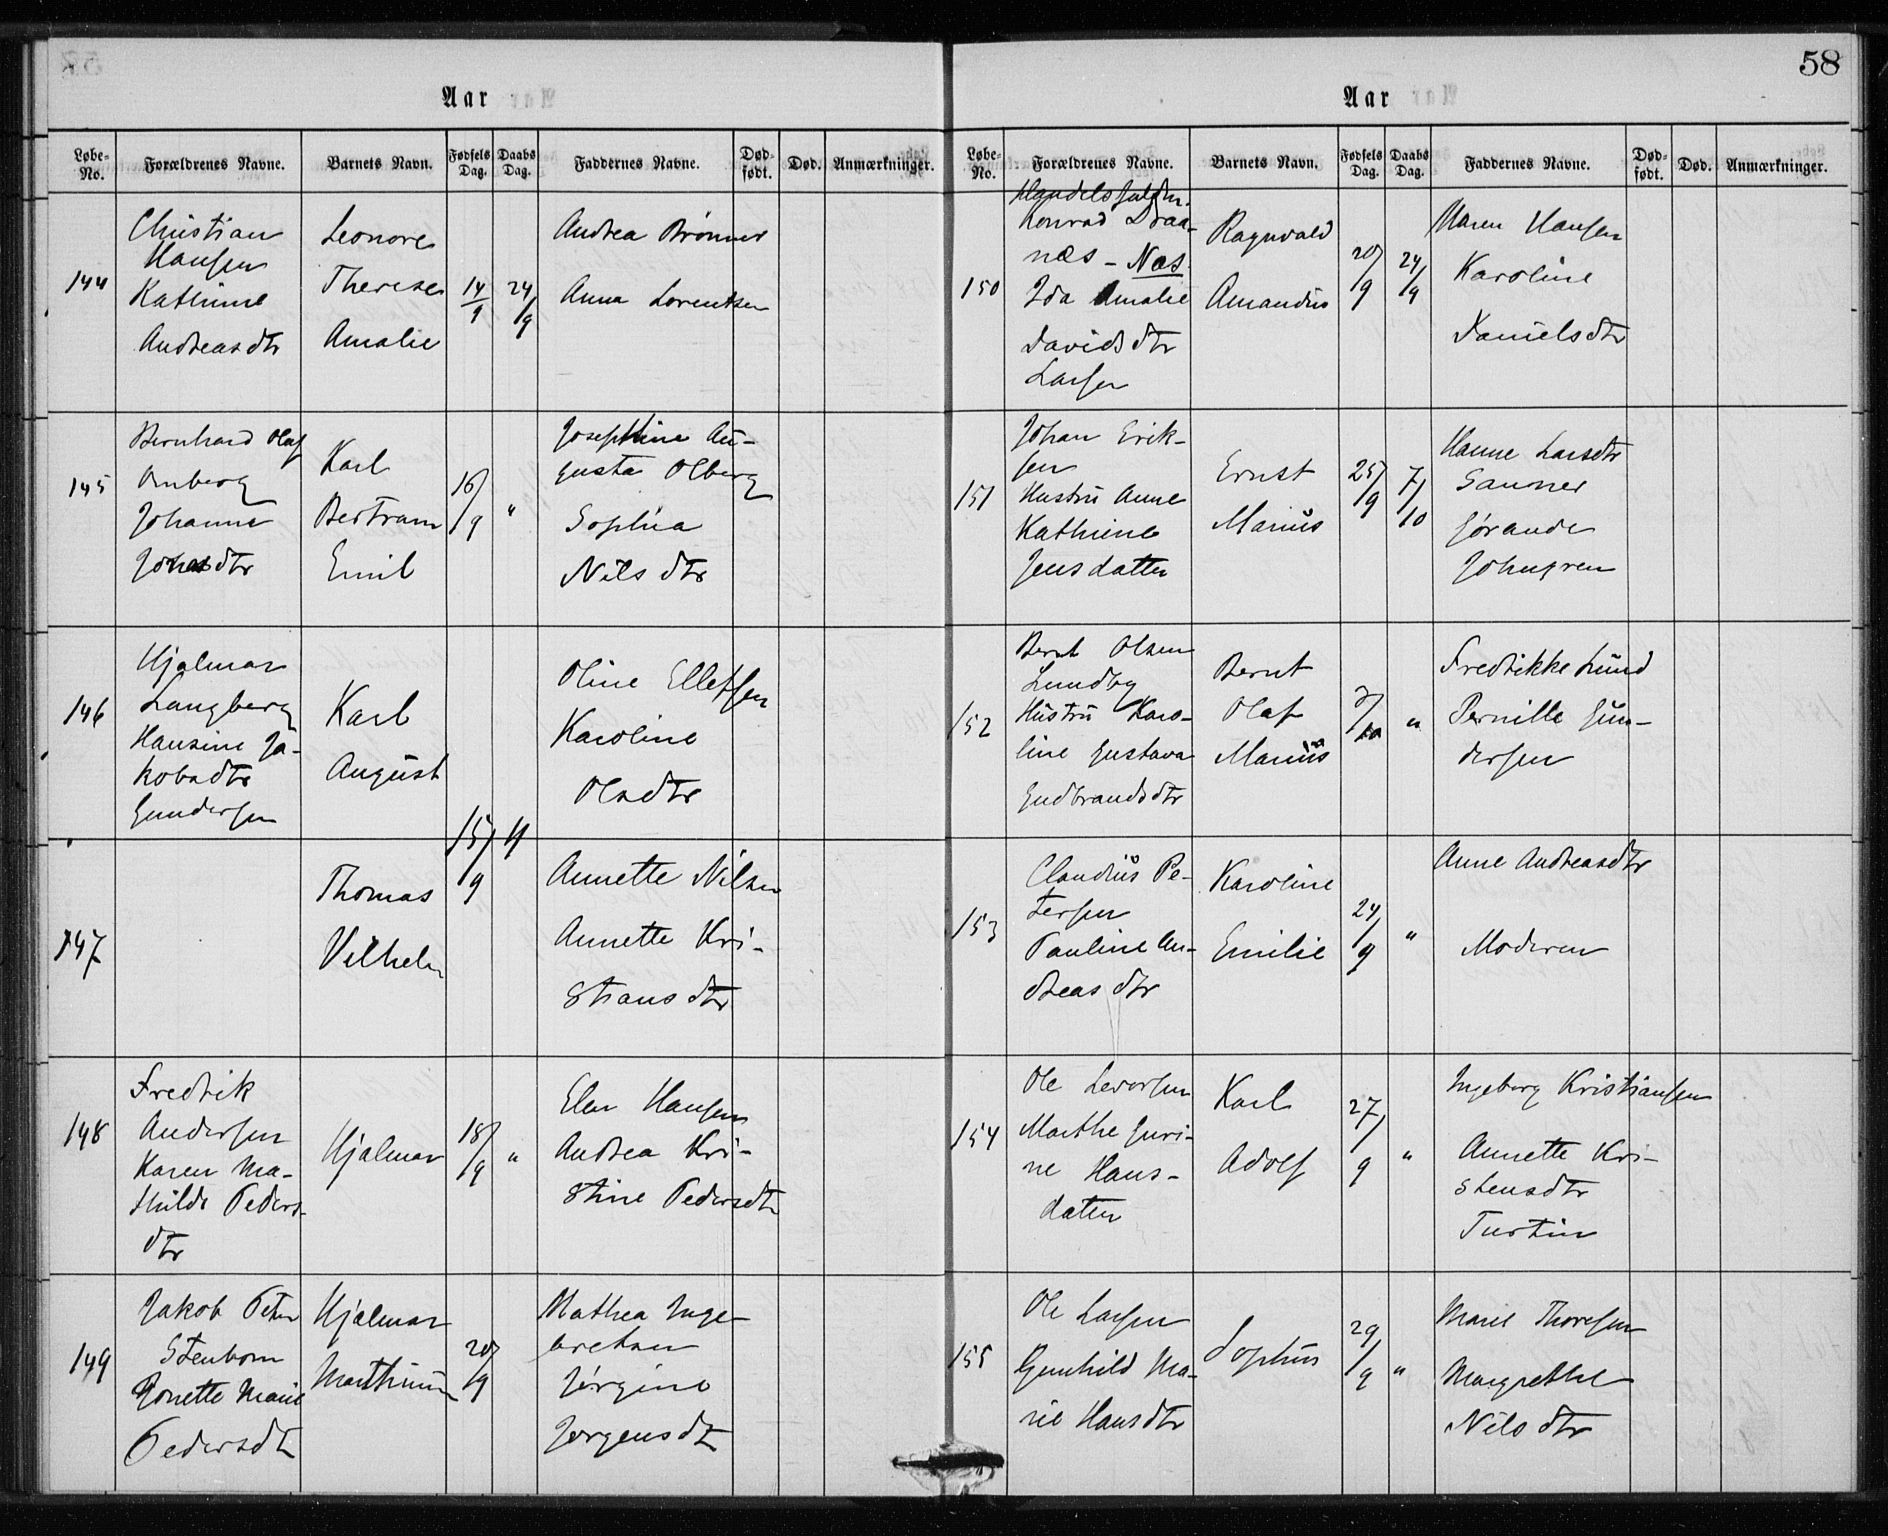 58
Aar
Løbe-No. Forældrenes Navne. Barnets Navn. Fødsels Dag. Daabs Dag. Faddernes Navne. Død-født. Død. Anmærkninger.
144
Christian
Hansen
Kathrine
Andreasdtr
Leonore
Therese
Amalie
14/9
24/9
Andrea Brönner
Anna Lorentsen
145
Bernhard Olaf
Johanne
Karl
Bertram
Emil
16/9
"
Josephine Au-
gusta Olberg
Sophia
Nils dtr
146
Hjalmar
Langberg
Hansine Ja-
kobsdtr
Gundersen
Karl
August
15/9
"
Oline Ellefsen
Karoline
Olsdtr
147
Thomas
Vilhelm
Annette Nilsen
Annette Kri-
stians dtr
148
Fredrik
Andersen
Karen Ma-
thilde Peders-
dtr
Hjalmar
18/9
"
Elen Hansen
Andrea Kri-
stine Pedersdtr
149
Jakob Peter
Stenborn
Jonette Marie
Pedersdtr
Hjalmar
Marthinius
20/9
Mathea Inge-
bretsen
Jørgine
Jørgensdtr
Aar
Løbe-No. Forældrenes Navne. Barnets Navn. Fødsels Dag. Daabs Dag. Faddernes Navne. Død-født. Død. Anmærkninger.
150
Handelsfuldm.
Konrad Draa-
næs - Næs.
Ida Amalie
Davids dtr
Larsen
Ragnvald
Amandus
20/9
24/9
Maren Hansen
Karoline
Daniels dtr
151
Johan Erik-
sen
Hustru Anne
Kathrine
Jens datter
Ernst
Marius
25/9
7/10
Hanne Larsdtr
Sanner
Jørande
Johngren
152
Bernt Olsen
Lundby
Hustru Karo-
line Gustava
Gudbrandsdtr
Bernt
Olaf
Marius
"
Fredrikke Lund
Pernille Gun-
dersen
153
Claudius Pe-
tersen
Pauline An-
dreas dtr
Karoline
Emilie
24/9
"
Anne Andreasdtr
Moderen
154
Ole Levorsen
Marthe Guri-
ne Hans-
datter
Karl
Adolf
27/9
"
Ingeborg Kristiansen
Annette Kri-
stensdtr
155
Ole Larsen
Gunhild Ma-
rie Hansdtr
Sophus
29/9
"
Marie Thoresen
Margrethe
Nils dtr